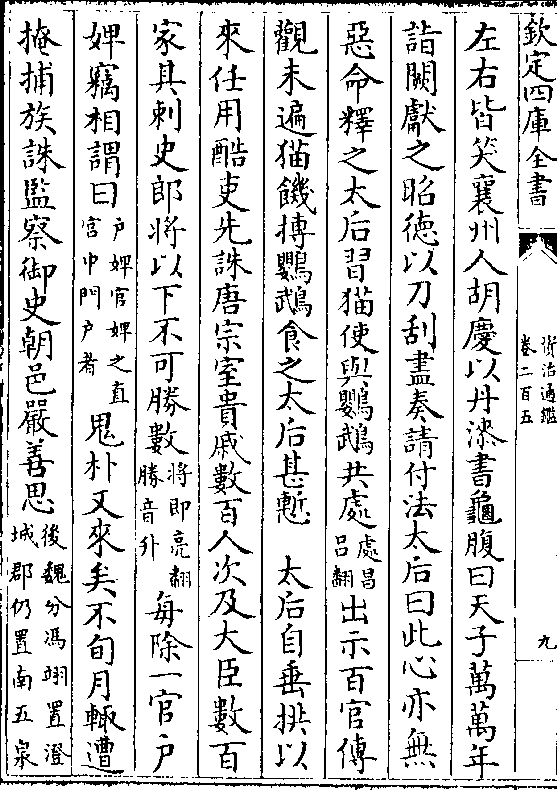 欽定四庫全書
資治通鑑
卷二百五
九
左右皆笑襄州人胡慶以丹漆書龜腹曰天子萬萬年
詣闕獻之昭德以刀刮盡奏請付法太后曰此心亦無
惡命釋之太后習猫使與鸚鵡共處處昌呂翻出示百官傳
觀未遍猫饑搏鸚鵡食之太后甚慙　太后自垂拱以
來任用酷吏先誅唐宗室貴戚數百人次及大臣數百
家其刺史郎將以下不可勝數將即亮翻勝音升每除一官户
婢竊相謂曰户婢官婢之直宫中門户者鬼朴又來矣不旬月輒遭
掩捕族誅監察御史朝邑嚴善思後魏分馮翊置澄城郡仍置南五泉